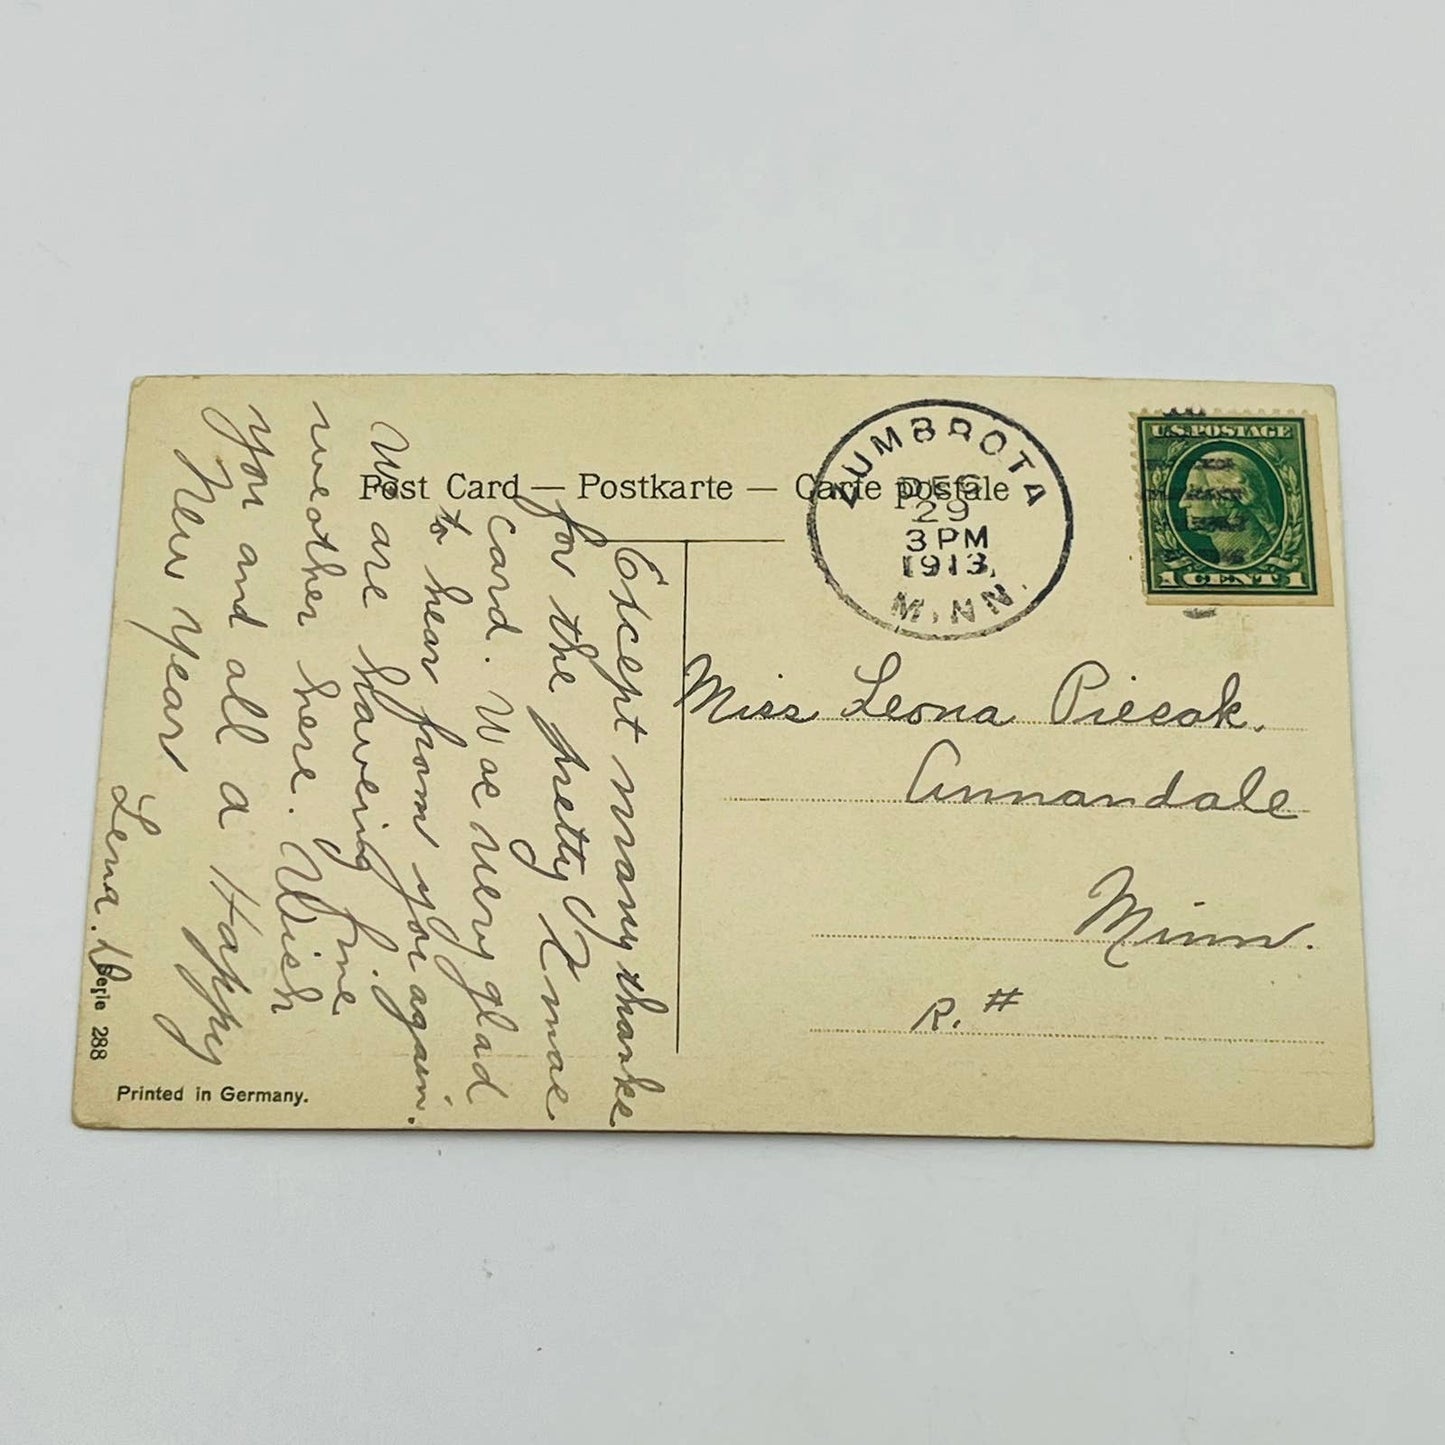 Post Card — Postkarte — Carte postale
ZUMBROTA
DEC
29
3 PM
1913
MINN.
U.S. POSTAGE
1 CENT 1
Miss Leona Piecok.
Annandale
Minn.
R. #
Except many thanks
for the pretty Xmas
card. Was very glad
to hear from you again.
We are haveing fine
weather here. Wish
you and all a Happy
New Year
Lena. D
Serie 288
Printed in Germany.